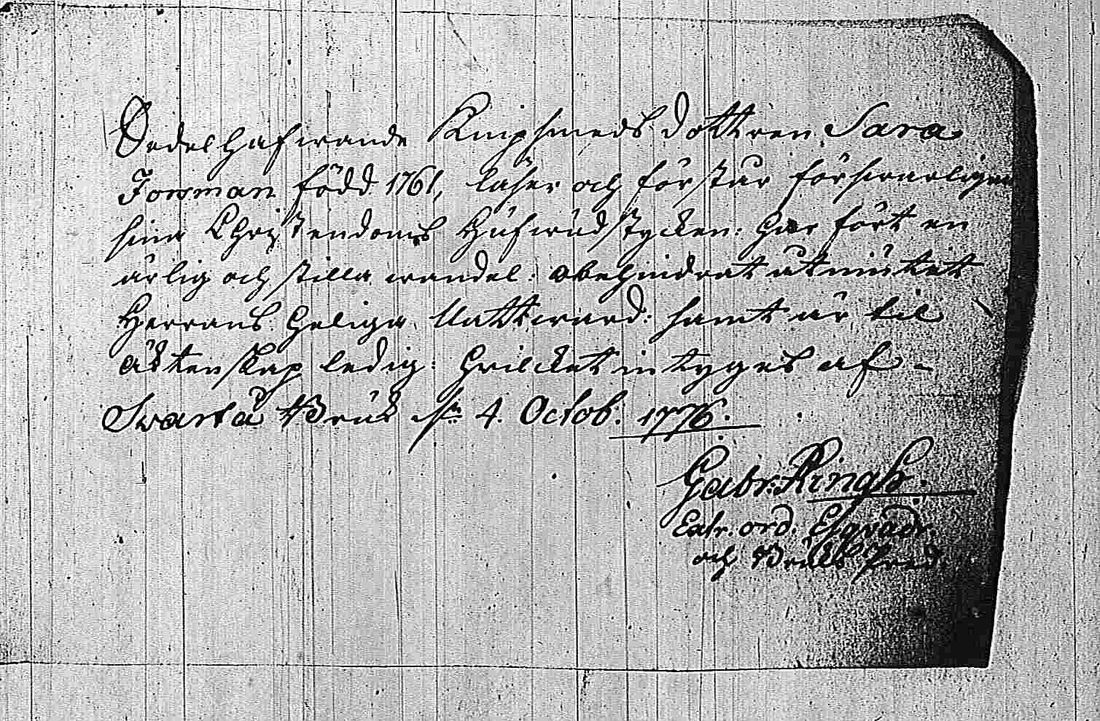 Sedelhafwande Knipsmeds dottren Sara
Forsman född 1761, läser och förstår förswarligen
sina Christendoms Hufwudstycken: har fört en
ärlig och stilla wandel: obehindrat utniutit
Herrans Heliga Nattward: samt är til
äktenskap ledig: hvilcket intyges af -
Svartå Bruk 4. Octob: 1776.
Gabr. Ringh.
Extr. ord. Esquadr.
och Bruks Pred.